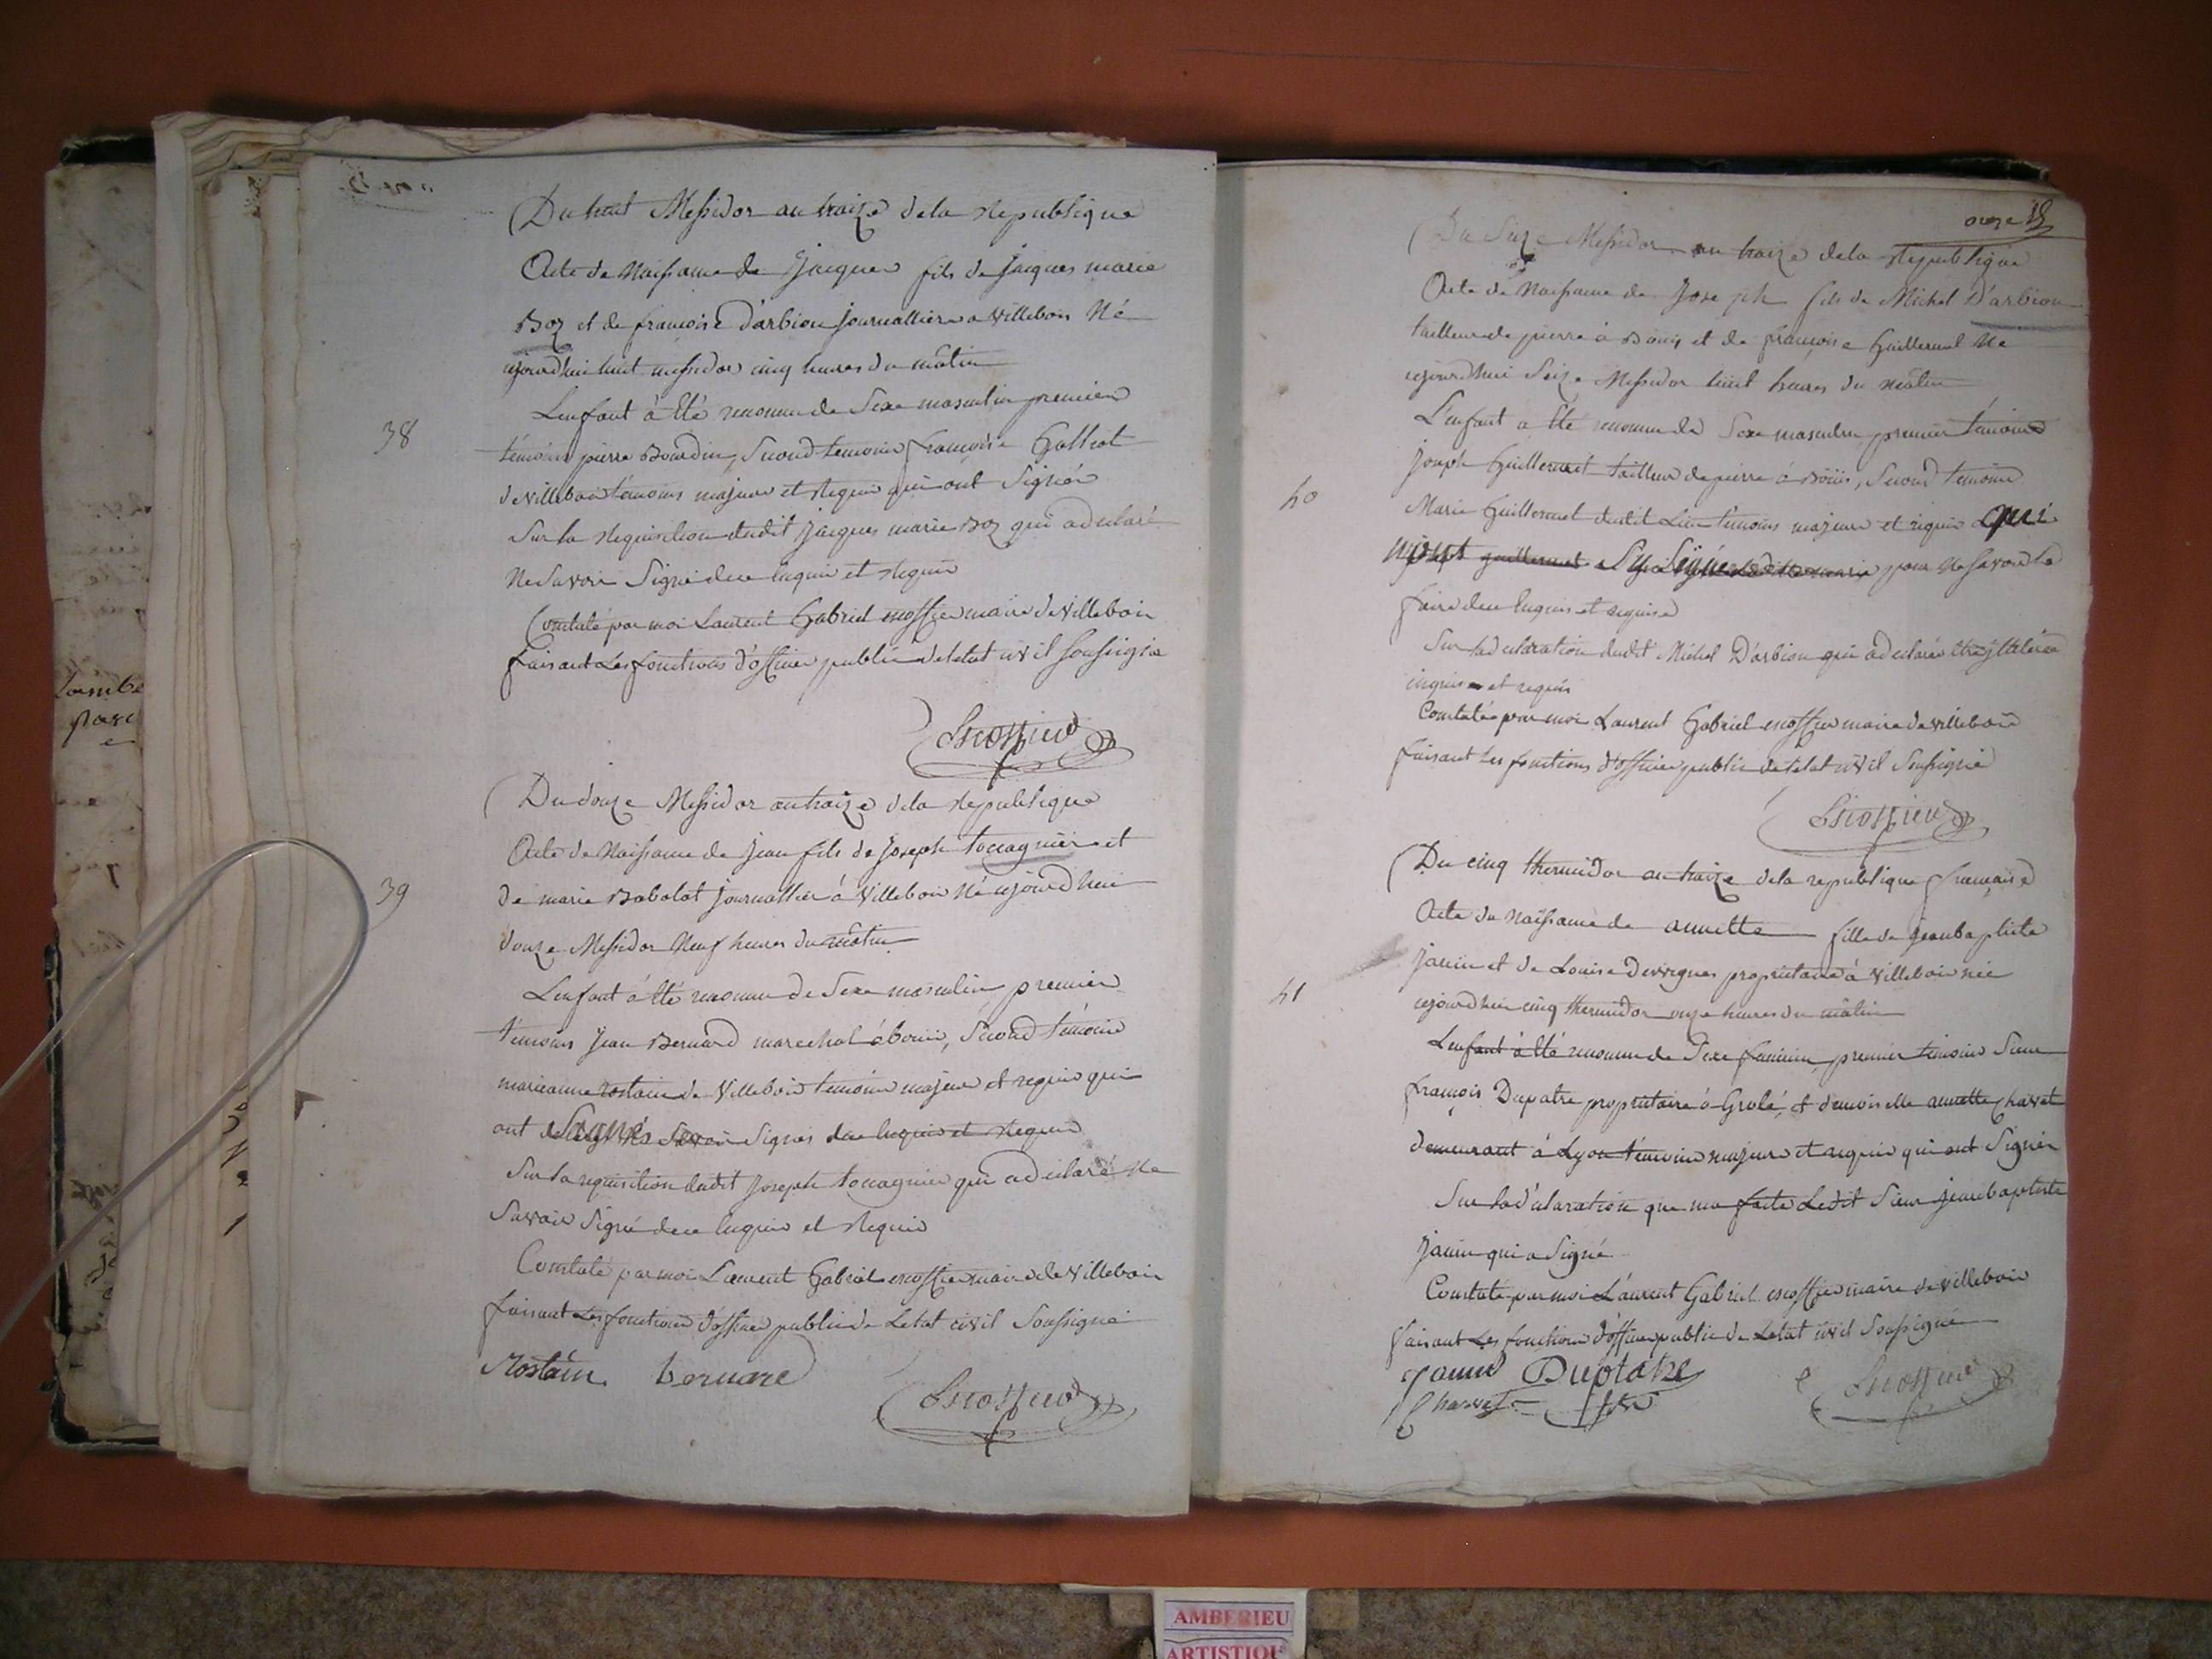 Du huit Messidor an traize dela Republique
Acte de Naissance de Jacques fils de jacques marie
Boz et de françoise d'arbion journallier a Villebois Né
cejourd'hui huit messidor cinq heures du matin
L'enfant à été reconnu de Sexe masculin premier
38
témoin pierre Bourdin, Second temoin françoise Galliot
de villebois témoins majeurs et requis qui ont Signés
Sur la Requisition dudit jacques marie Boz qui a déclaré
Ne Savoir Signé de ce Enquis et Requis
Constaté par moi Laurent Gabriel escoffier maire de Villebois
faisant Les fonctions d'officier public de letat civil Soussigné
Escoffier
Du douze Messidor an traize dela Republique
Acte de Naissance de jean fils de joseph tocagnier et
39
de marie Babolat journallier à Villebois Né cejourd'hui
douze Messidor Neuf heures du matin
L'enfant à été reconnu de Sexe masculin premier
témoins jean Bernard marechal à bouis, Second témoin
marieanne rostain de Villebois temoins majeur et requis qui
ont Signés Savoir Signer de ce enquis et Requis
Sur la requisition dudit joseph tocagnier qui a déclaré Ne
Savoir Signé de ce enquis et Requis
Constaté par moi Laurent Gabriel escoffier maire de Villebois
faisant Les fonctions d'officier public de Letat civil Soussigné
Rostain bernard
Escoffier
onze
Du Seize Messidor an traize dela Republique
Acte de Naissance de Joseph fils de Michel D'arbion
tailleur de pierre à Bouis et de françoise Guillermet Né
cejourd'hui Seize Messidor huit heures du matin
L'enfant a été reconnu de Sexe masculin premier témoins
joseph Guillermet tailleur de pierre à Bouis, Second temoins
40
Marie Guillermet dudit Lieu témoins majeurs et requis qui
n'ont guillermet Signé marie pour Ne Savoir Le
faire de ce enquis et requise
Sur la declaration dudit Michel D'arbion qui a déclaré
enquis et requis
Constaté par moi Laurent Gabriel escoffier maire de villebois
faisant Les fonctions d'officier public de letat civil Soussigné
Escoffier
Du cinq thermidor an traize dela republique francaise
Acte de Naissance de annette fille de jeanbaptiste
janin et de Louise Devignes proprietaire à Villebois née
41
cejourd'hui cinq thermidor onze heures du matin
L'enfant à été reconnu de Sexe feminin, premier temoins Sieur
françois Dupatre propriétaire à Grolé, et demoiselle annette Charvet
demeurant à Lyon témoins majeurs et requis qui ont Signés
Sur la déclaration que ma faite Ledit Sieur jeanbaptiste
janin qui a Signé
Constaté par moi Laurent Gabriel escoffier maire de villebois
faisant Les fonctions d'officier public de Létat civil Soussigné
Janin Dupatre
Charvet
Escoffier
AMBERIEU
ARTISTIQU